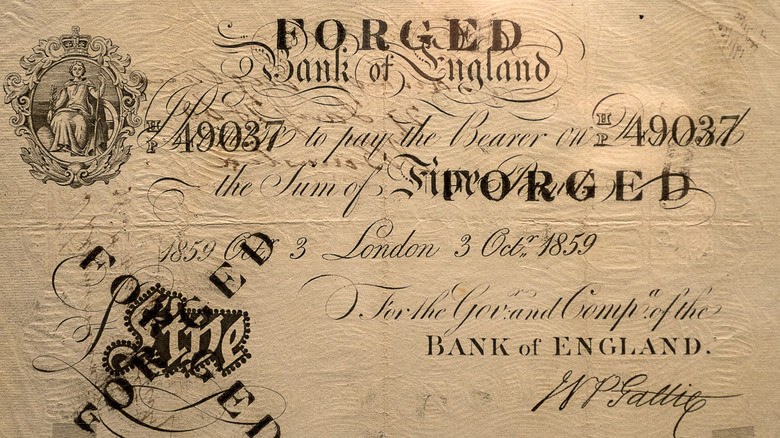 FORGED
Bank of England
H/P 49037 to pay the Bearer on H/P 49037
the Sum of Five FORGED
1859 Octr. 3 London 3 Octr. 1859
FORGED
Five
FORGED
For the Govr. and Compa. of the
BANK of ENGLAND.
W P Gattie